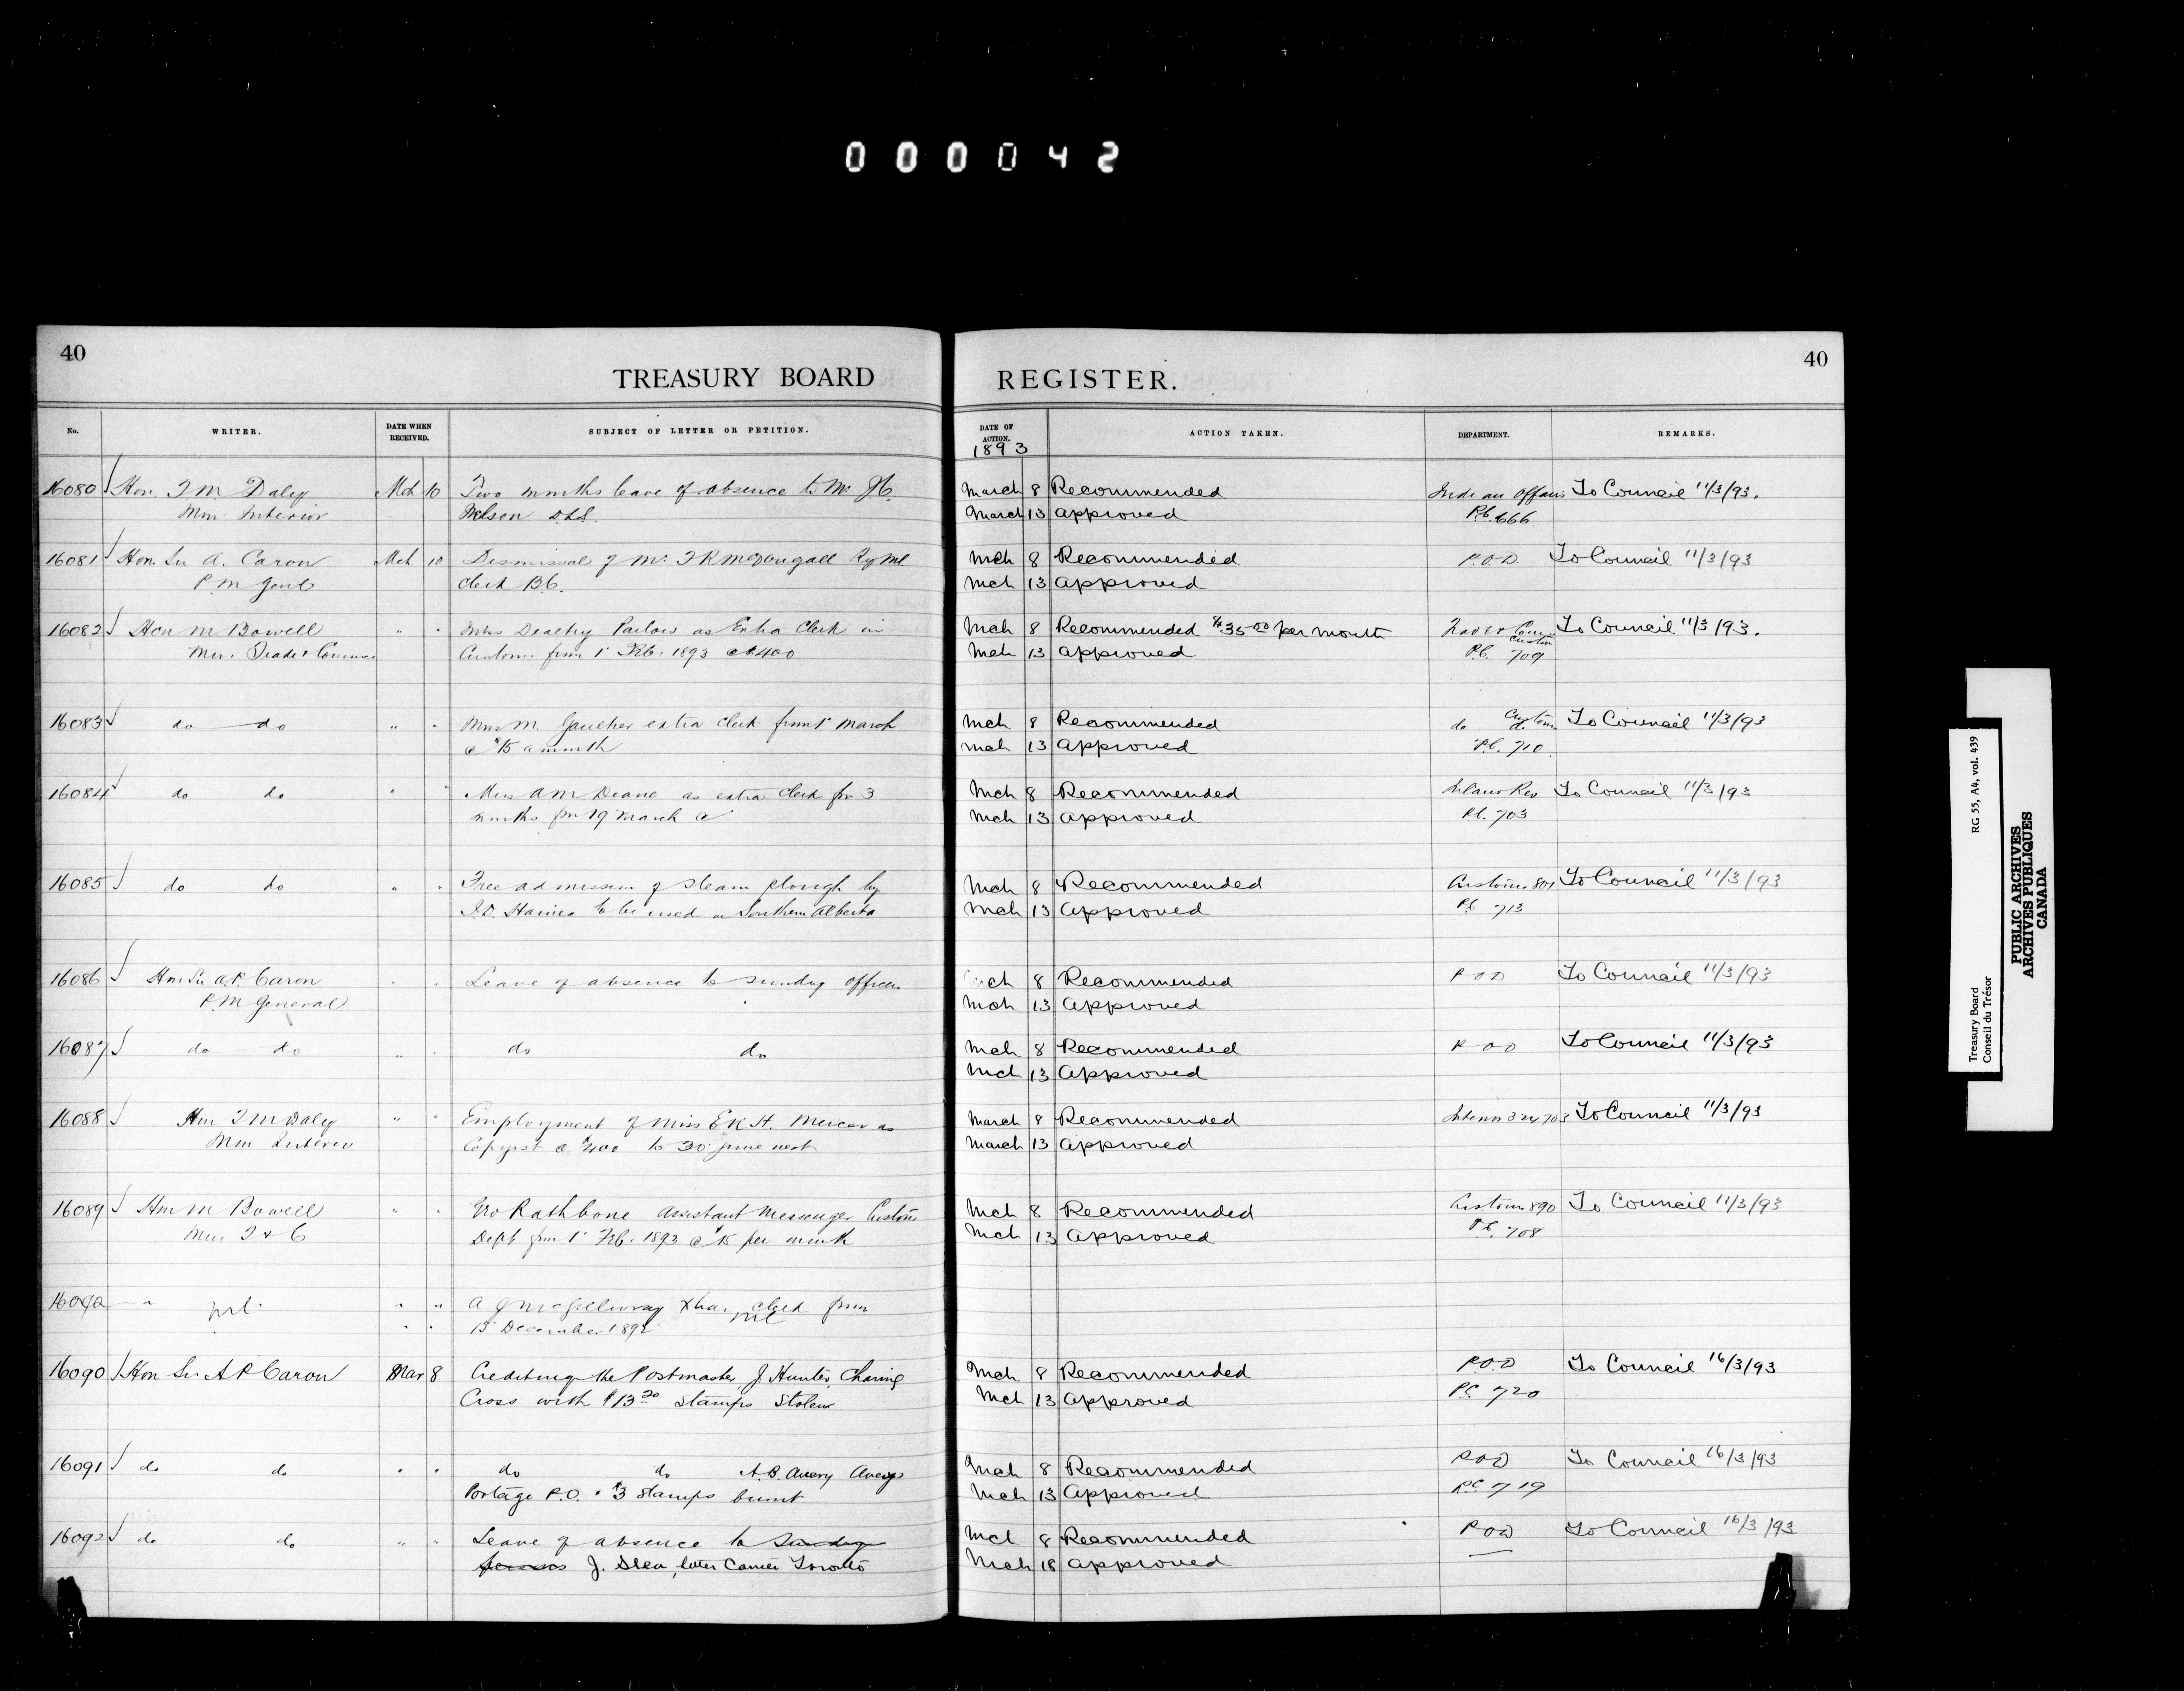 000042
40
TREASURY BOARD
REGISTER.
40
No.
WRITER.
DATE WHEN RECEIVED.
SUBJECT OF LETTER OR PETITION.
DATE OF ACTION.
1893
ACTION TAKEN.
DEPARTMENT.
REMARKS.
16080 Hon. T M Daly Mch 10 Two months leave of absence to Mr J C. March 8 Recommended Indian Affairs To Council 11/3/93.
Min Interior Nelson D.L.S. March 13 approved P.C. 666
16081 Hon Sir A. Caron Mch 10 Dismissal of Mr. McDougall Ry Ml Mch 8 Recommended P.O.D. To Council 11/3/93
P M Genl Clerk B.C. Mch 13 approved
16082 Hon M Bowell " " Miss Dealtry as Extra Clerk in Mch 8 Recommended $35.00 per month Trade & Com To Council 11/3/93.
Customs
Min. Trade & Commerce Customs from 1st Feb. 1893 @ $400 Mch 13 approved P.C. 709
16083 do do " " M. Gaultier extra clerk from 1st March Mch 8 Recommended do Customs To Council 11/3/93
@ $15 a month Mch 13 approved P.C. 710
16084 do do " " Miss A M Deane as extra clerk for 3 Mch 8 Recommended Inland Rev To Council 11/3/93
months from 19 March @ Mch 13 approved P.C. 703
16085 do do " " Free admission of steam plough by Mch 8 Recommended Customs 801 To Council 11/3/93
Haines to be used in Southern Alberta Mch 13 approved P.C. 713
16086 Hon Sir A.P. Caron " " Leave of absence to sundry officers Mch 8 Recommended P O D To Council 11/3/93
P.M General Mch 13 approved
16087 do do " " do do Mch 8 Recommended P O D To Council 11/3/93
Mch 13 approved
16088 Hon T M Daly " " Employment of Miss E K H. Mercer as March 8 Recommended Interior 324703 To Council 11/3/93
Min Interior Copyist @ $400 to 30 June next March 13 approved
16089 Hon M Bowell " " Geo Rathbone Assistant Messenger Customs Mch 8 Recommended Customs 890 To Council 11/3/93
Min T & C Dept from 1st Feb. 1893 @ $15 per month Mch 13 approved P.C. 708
" nil " " A J McGillivray Xtra clerk from
nil
" " 15 December 1892
16090 Hon Sir A P Caron Mar 8 Crediting the Postmaster, J. Hunter, Charing Mch 8 Recommended P.O.D To Council 16/3/93
Cross with $13.20 Stamps Stolen Mch 13 approved P.C. 720
16091 do do " " do do A.B. Avery Averys Mch 8 Recommended P O D To Council 16/3/93
Portage P.O. $3 Stamps burnt Mch 13 approved P.C. 719
16092 do do " " Leave of absence to Sundry Mch 8 Recommended P O D To Council 16/3/93
persons J. Shea, letter Carrier Toronto Mch 18 approved
Treasury Board RG 55, A4, vol. 439
Conseil du Trésor
PUBLIC ARCHIVES
ARCHIVES PUBLIQUES
CANADA